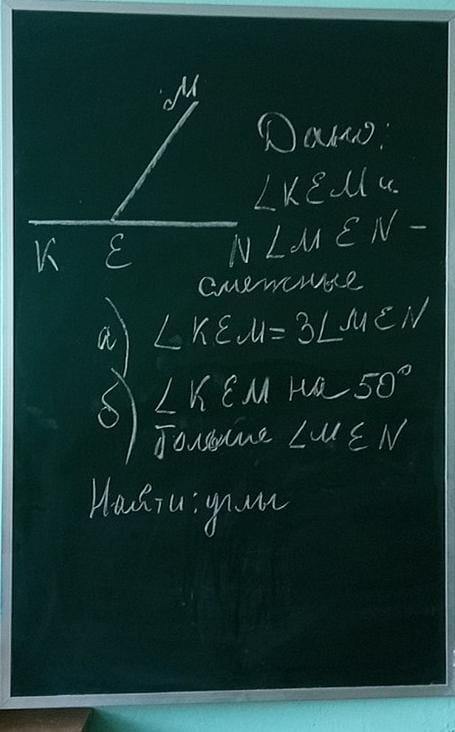 М
К Е N
Дано:
∠KEM и
∠MEN –
смежные
а) ∠KEM = 3∠MEN
б) ∠KEM на 50°
больше ∠MEN
Найти: углы